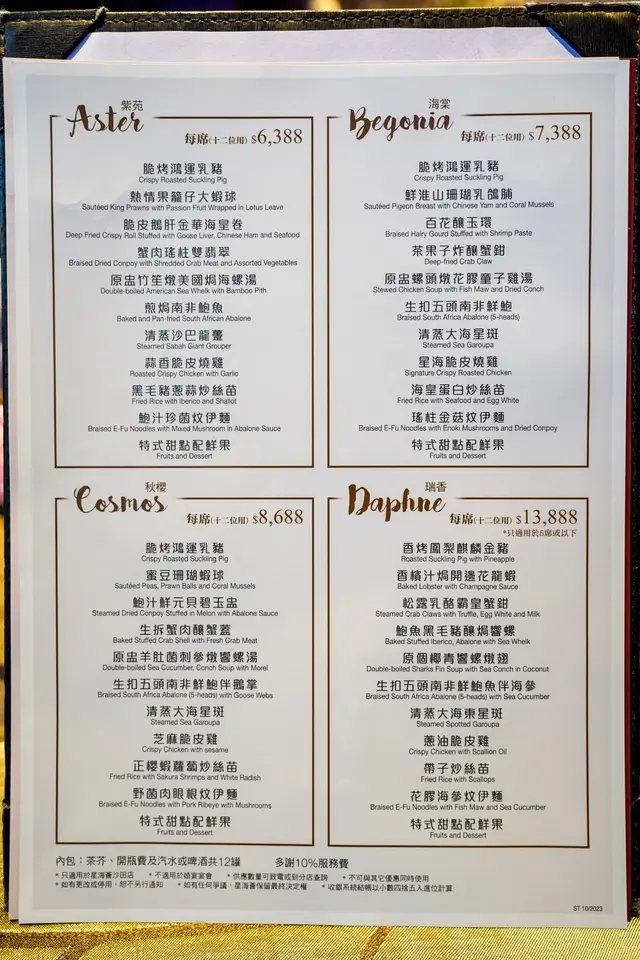 紫苑
Aster
每席(十二位用) $6,388
脆烤鴻運乳豬
Crispy Roasted Suckling Pig
熱情果籠仔大蝦球
Sautéed King Prawns with Passion Fruit Wrapped in Lotus Leave
脆皮鵝肝金華海皇卷
Deep Fried Crispy Roll Stuffed with Goose Liver, Chinese Ham and Seafood
蟹肉瑤柱雙翡翠
Braised Dried Conpoy with Shredded Crab Meat and Assorted Vegetables
原盅竹笙燉美國焗海螺湯
Double-boiled American Sea Whelk with Bamboo Pith
煎焗南非鮑魚
Baked and Pan-fried South African Abalone
清蒸沙巴龍躉
Steamed Sabah Giant Grouper
蒜香脆皮燒雞
Roasted Crispy Chicken with Garlic
黑毛豬蔥蒜炒絲苗
Fried Rice with Iberico and Shallot
鮑汁珍菌炆伊麵
Braised E-Fu Noodles with Mixed Mushroom in Abalone Sauce
特式甜點配鮮果
Fruits and Dessert
海棠
Begonia
每席(十二位用) $7,388
脆烤鴻運乳豬
Crispy Roasted Suckling Pig
鮮淮山珊瑚乳鴿脯
Sautéed Pigeon Breast with Chinese Yam and Coral Mussels
百花釀玉環
Braised Hairy Gourd Stuffed with Shrimp Paste
茶果子炸釀蟹鉗
Deep-fried Crab Claw
原盅螺頭燉花膠童子雞湯
Stewed Chicken Soup with Fish Maw and Dried Conch
生扣五頭南非鮮鮑
Braised South Africa Abalone (5-heads)
清蒸大海星斑
Steamed Sea Garoupa
星海脆皮燒雞
Signature Crispy Roasted Chicken
海皇蛋白炒絲苗
Fried Rice with Seafood and Egg White
瑤柱金菇炆伊麵
Braised E-Fu Noodles with Enoki Mushrooms and Dried Conpoy
特式甜點配鮮果
Fruits and Dessert
秋櫻
Cosmos
每席(十二位用) $8,688
脆烤鴻運乳豬
Crispy Roasted Suckling Pig
蜜豆珊瑚蝦球
Sautéed Peas, Prawn Balls and Coral Mussels
鮑汁鮮元貝碧玉盅
Steamed Dried Conpoy Stuffed in Melon with Abalone Sauce
生拆蟹肉釀蟹蓋
Baked Stuffed Crab Shell with Fresh Crab Meat
原盅羊肚菌刺參燉響螺湯
Double-boiled Sea Cucumber, Conch Soup with Morel
生扣五頭南非鮮鮑伴鵝掌
Braised South Africa Abalone (5-heads) with Goose Webs
清蒸大海星斑
Steamed Sea Garoupa
芝麻脆皮雞
Crispy Chicken with sesame
正櫻蝦蘿蔔炒絲苗
Fried Rice with Sakura Shrimps and White Radish
野菌肉眼根炆伊麵
Braised E-Fu Noodles with Pork Ribeye with Mushrooms
特式甜點配鮮果
Fruits and Dessert
瑞香
Daphne
每席(十二位用) $13,888
*只適用於5席或以下
香烤鳳梨麒麟金豬
Roasted Suckling Pig with Pineapple
香檳汁焗開邊花龍蝦
Baked Lobster with Champagne Sauce
松露乳酪霸皇蟹鉗
Steamed Crab Claws with Truffle, Egg White and Milk
鮑魚黑毛豬釀焗響螺
Baked Stuffed Iberico, Abalone with Sea Whelk
原個椰青響螺燉翅
Double-boiled Sharks Fin Soup with Sea Conch in Coconut
生扣五頭南非鮮鮑魚伴海參
Braised South Africa Abalone (5-heads) with Sea Cucumber
清蒸大海東星斑
Steamed Spotted Garoupa
蔥油脆皮雞
Crispy Chicken with Scallion Oil
帶子炒絲苗
Fried Rice with Scallops
花膠海參炆伊麵
Braised E-Fu Noodles with Fish Maw and Sea Cucumber
特式甜點配鮮果
Fruits and Dessert
內包：茶芥、開瓶費及汽水或啤酒共12罐 多謝10%服務費
* 只適用於星海薈沙田店 * 不適用於婚宴宴會 * 供應數量可致電或到分店查詢 * 不可與其它優惠同時使用
* 如有更改或停用，恕不另行通知 * 如有任何爭議，星海薈保留最終決定權 * 收銀系統結帳以小數四捨五入進位計算
ST 10/2023